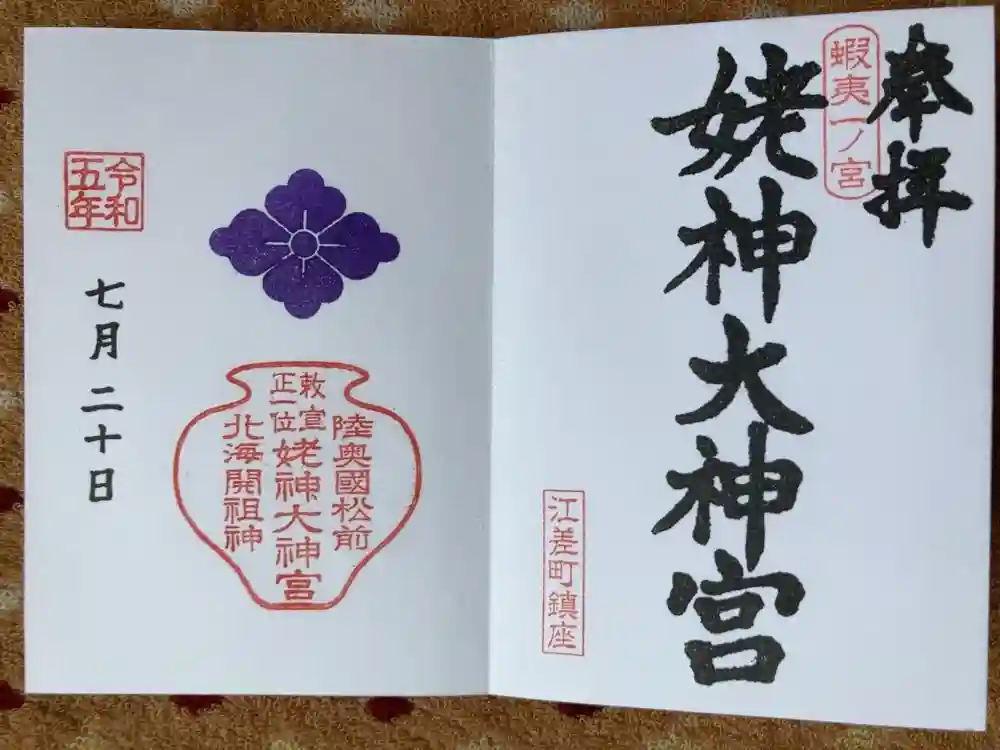 奉拝
蝦夷一ノ宮
姥神大神宮
江差町鎮座
陸奥國松前
敕宣
正一位
姥神大神宮
北海開祖神
令和
五年
七月二十日